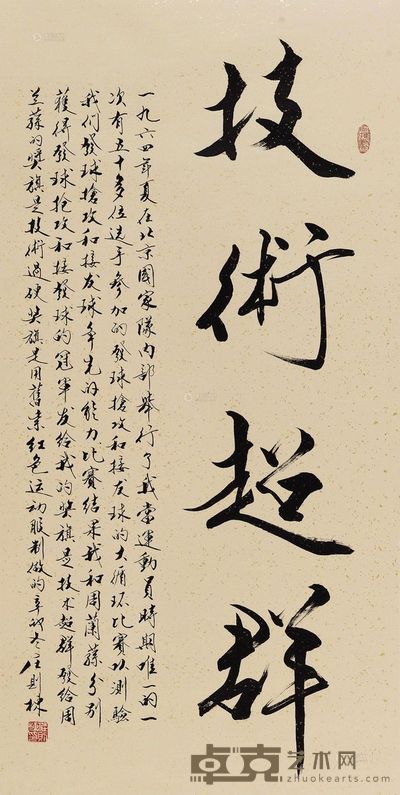 技術超群
一九六四年夏在北京國家隊內部舉行了我當運動員時期唯一的一
次有五十多位选手參加的發球搶攻和接发球的大循环比赛以測驗
我们發球搶攻和接发球爭先的能力比賽结果我和周蘭蓀分别
獲得發球抢攻和接發球的冠軍发给我的奖旗是技术超群發给周
兰蓀的奖旗是技術過硬奖旗是用舊的红色运动服制做的辛卯冬庄则棟
卓克艺术网
www.zhuokearts.com